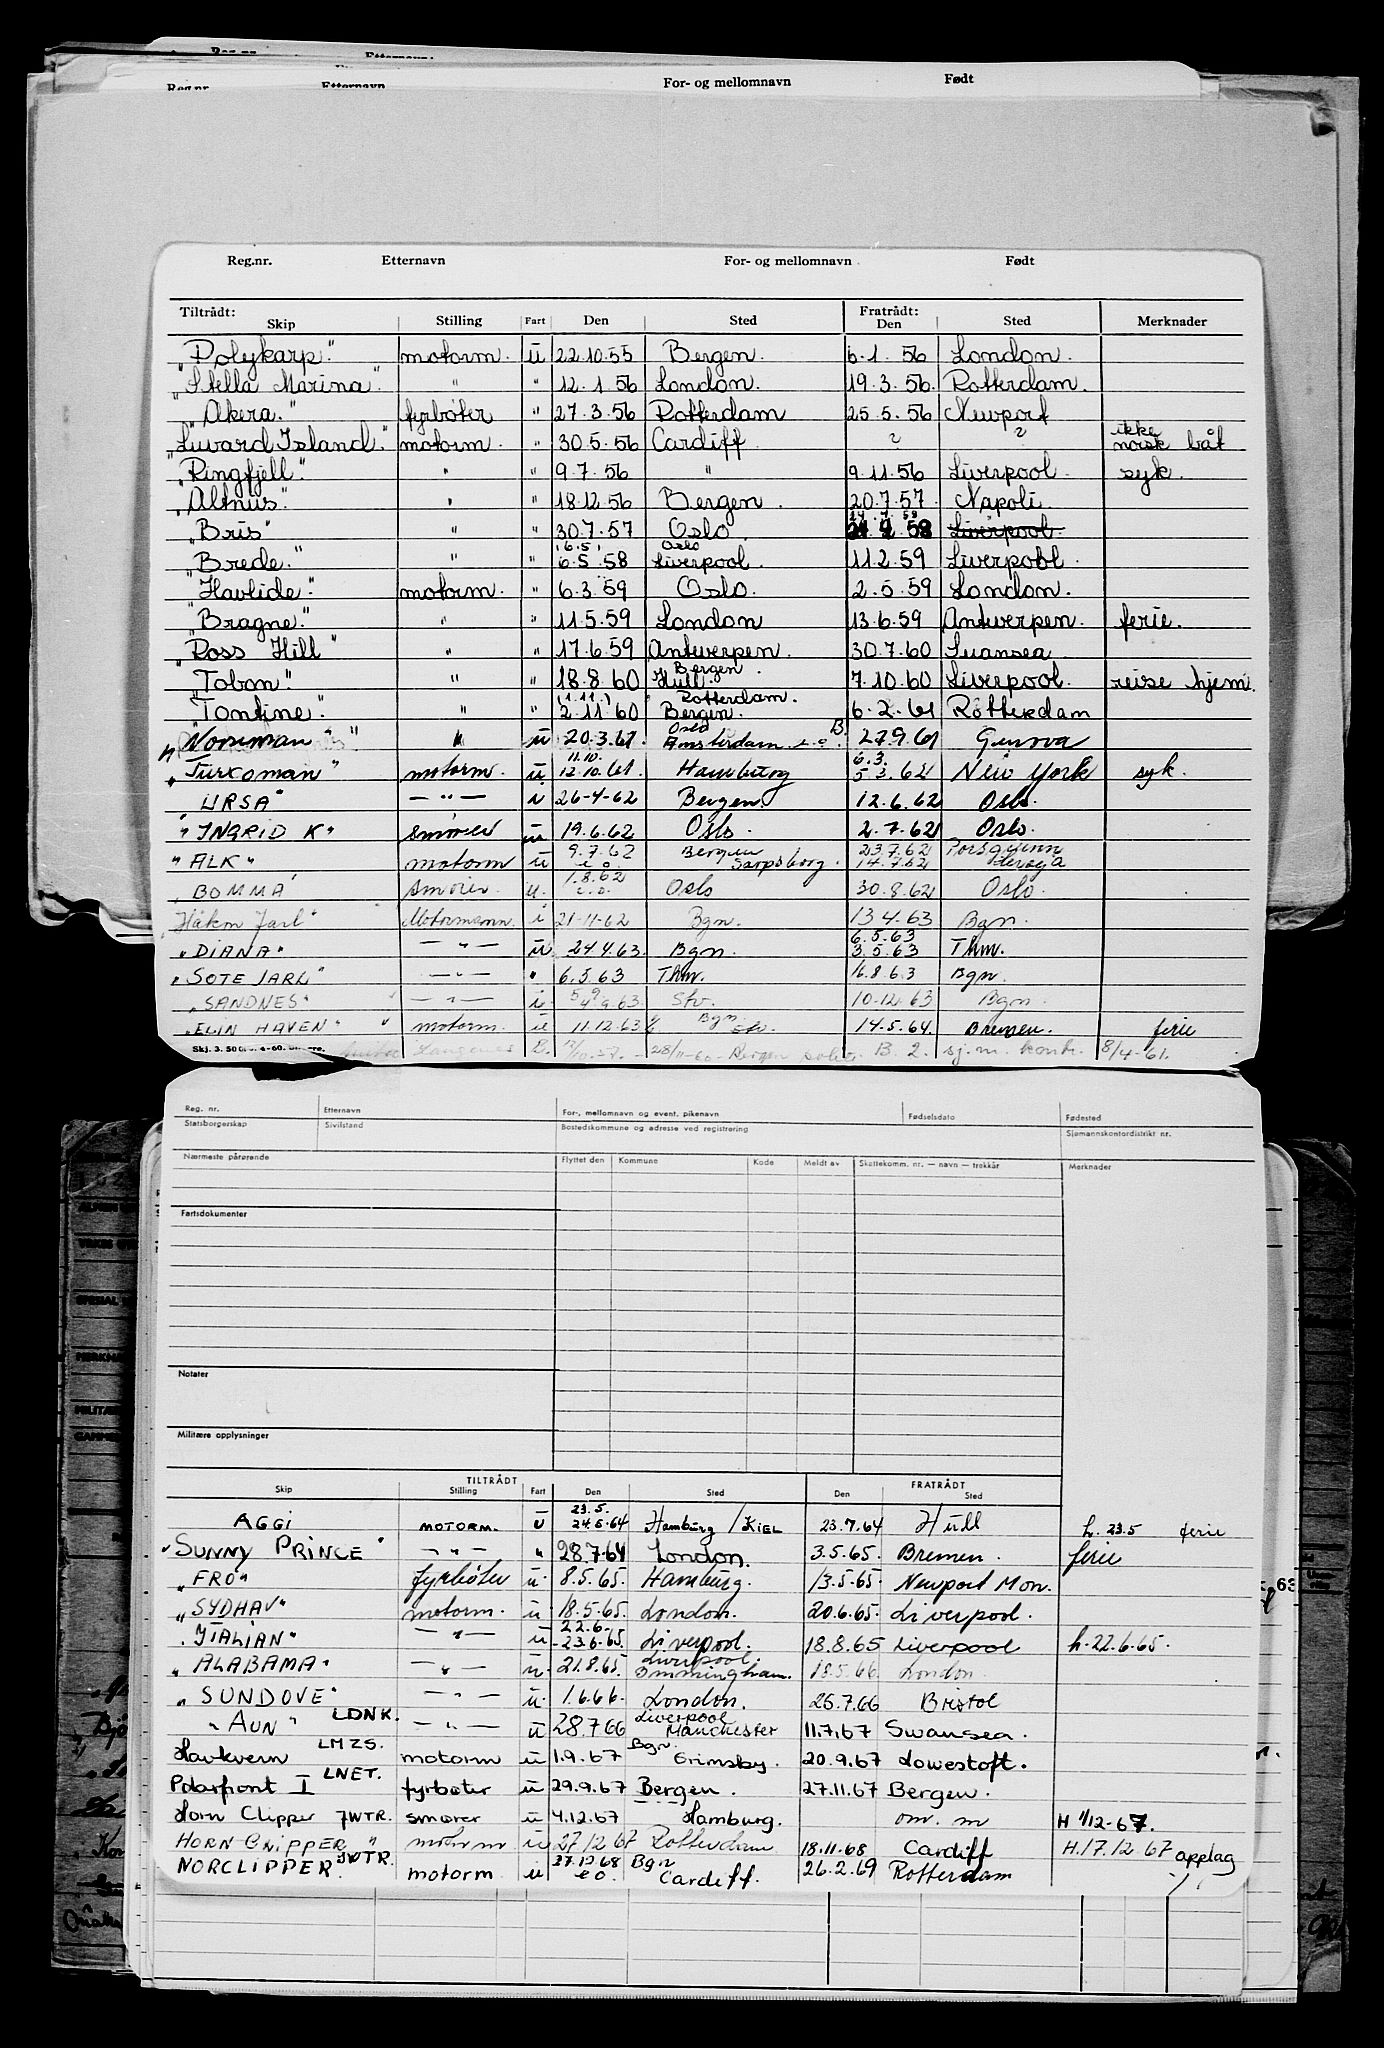 Reg.nr. Etternavn
Reg.nr. Etternavn For- og mellomnavn Født
Reg.nr. Etternavn For- og mellomnavn Født
Tiltrådt: Skip Stilling Fart Den Sted Fratrådt: Den Sted Merknader
"Polykarp" motorm. u 22.10.55 Bergen. 6.1.56 London.
"Stella Marina" " " 12.1.56 London. 19.3.56. Rotterdam.
"Akera." fyrbøter " 27.3.56 Rotterdam 25.5.56 Newport
Island" motorm. " 30.5.56 Cardiff ? ? ikke norsk båt
"Ringfjell" " " 9.7.56 " 9.11.56 Liverpool. syk.
" " 18.12.56 Bergen. 20.7.57. Napoli.
"Bris" " " 30.7.57 Oslo. Liverpool.
"Brede." " " 6.5.58 Oslo Liverpool. 11.2.59 Liverpool.
"Havlide" motorm. " 6.3.59 Oslo. 2.5.59 London.
"Bragne" " " 11.5.59 London 13.6.59 Antwerpen. ferie.
"Ross Hill" " " 17.6.59 Antwerpen. 30.7.60 Swansea
"Tobon" " " 18.8.60 Bergen Hull. 7.10.60 Liverpool. reise hjem.
"Tontine" " " (1.11.) 2.11.60 Rotterdam. Bergen. 6.2.61 Rotterdam
"Norseman" " u 20.3.61. Oslo Amsterdam 27.9.61 Genova
"Turcoman" motorm. u 11.10. 12.10.61 Hamburg 6.3. 5.3.62 New York syk.
"URSA" — " — 26-4-62 Bergen. 12.6.62 Oslo.
"INGRID K" smører u 19.6.62 Oslo. 2.7.62 Oslo.
"ALK" motorm u 9.7.62 e.o. Bergen Sarpsborg. 23.7.62 14.7.62 Porsgrunn Herøya
"BOMMA" smører. u. 1.8.62 e.o. Oslo 30.8.62 Oslo.
"Håkon Jarl" Motormann. i 21-11-62 Bgn. 13.4.63 Bgn.
"DIANA" — " — u 24.4.63. Bgn. 6.5.63 3.5.63 Thm.
"SOTE JARL" — " — " 6.5.63 Thm. 16.8.63 Bgn.
"SANDNES" — " — 9.63. Stv. 10-12.63 Bgn.
"ELIN HAVEN" motorm. u 11.12.63 Bgn. Stv. 14.5.64. Bremen. ferie
Skj. 3. Langenes B. 28/11-60 Bergen B. 2. sj.m. kontr. 8/4-61.
Reg. nr. Etternavn For-, mellomnavn og event. pikenavn Fødselsdato Fødested
Statsborgerskap Sivilstand Bostedskommune og adresse ved registrering Sjømannskontordistrikt nr.
Nærmeste pårørende Flyttet den Kommune Kode Meldt av Skattekomm. nr. — navn — trekkår Merknader
Fartsdokumenter
Notater
Militære opplysninger
TILTRÅDT FRATRÅDT
Skip Stilling Fart Den Sted Den Sted
AGGI MOTORM. u 23.5. 24.5.64 Hamburg / KIEL 23.7.64 Hull h. 23.5 ferie
"SUNNY PRINCE" — " — " 28.7.64 London. 3.5.65. Bremen. ferie
"FRO" fyrbøter u. 8.5.65. Hamburg. 13.5.65. Newport Mon.
"SYDHAV" motorm. u 18.5.65. London. 20.6.65. Liverpool.
"ITALIAN" — " — u 22.6- 23.6.65. Liverpool. 18.8.65 Liverpool h. 22.6.65.
"ALABAMA" — " — u. 21.8.65. Liverpool. Immingham. 18.5.66 London
"SUNDOVE" — " — u. 1.6.66. London. 25.7.66 Bristol
"AUN" LDNK. — " — u 28.7.66 Liverpool Manchester 11.7.67 Swansea.
Havkvern LMZS. motorm u 1.9.67 Bgn. Grimsby. 20.9.67 Lowestoft.
Polarfront I LNET. fyrbøter u 29.9.67 Bergen. 27.11.67 Bergen.
Horn Clipper JWTR. smører u 4.12.67 Hamburg. om. m H 1/12-67.
HORN CLIPPER " motorm u 27.12.67 Rotterdam 18.11.68 Cardiff H.17.12.67 opplag
NORCLIPPER JWTR. motorm u 27.12.68 e o. Bgn Cardiff. 26.2.69 Rotterdam